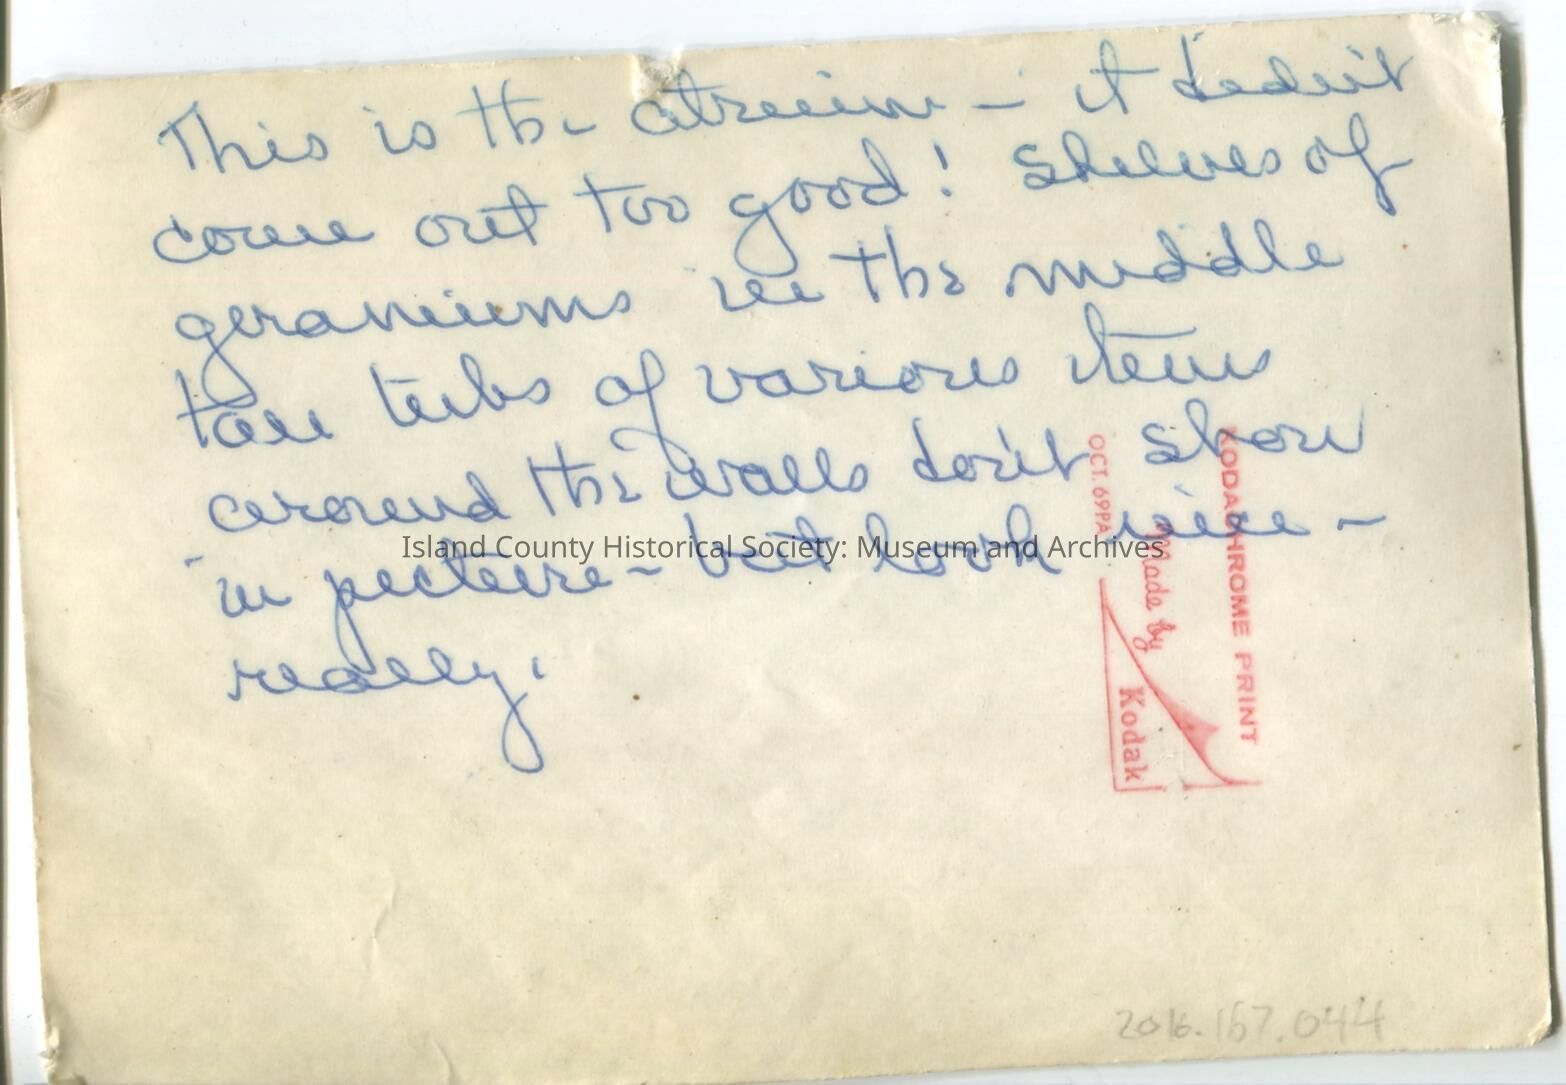 This is the atrium – it didn't
come out too good! Shelves of
geraniums in the middle
tubs of various items
around the walls don't show
in picture – but look nice –
really.
Island County Historical Society: Museum and Archives
KODACHROME PRINT
Made by
Kodak
OCT. 69PA
2016.167.044